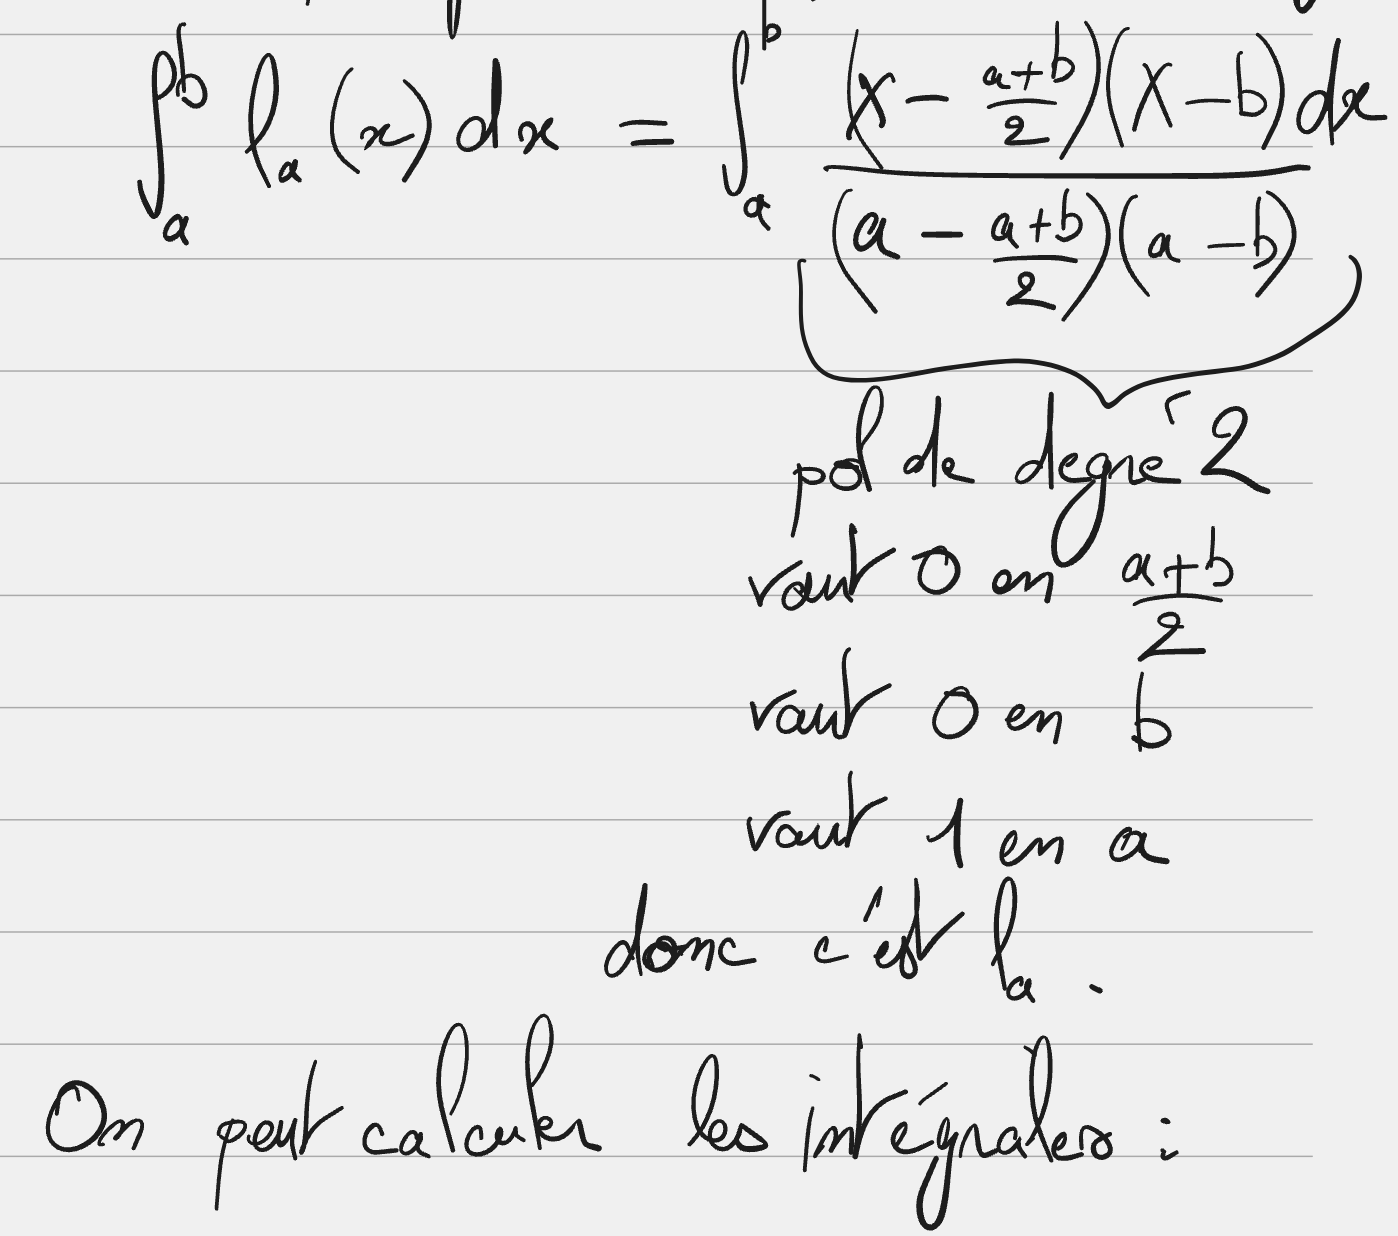 ∫_a^b l_a(x) dx = ∫_a^b \frac{(x - \frac{a+b}{2})(x - b) dx}{(a - \frac{a+b}{2})(a - b)}
pol de degré 2
vaut 0 en \frac{a+b}{2}
vaut 0 en b
vaut 1 en a
donc c'est l_a.
On peut calculer les intégrales :